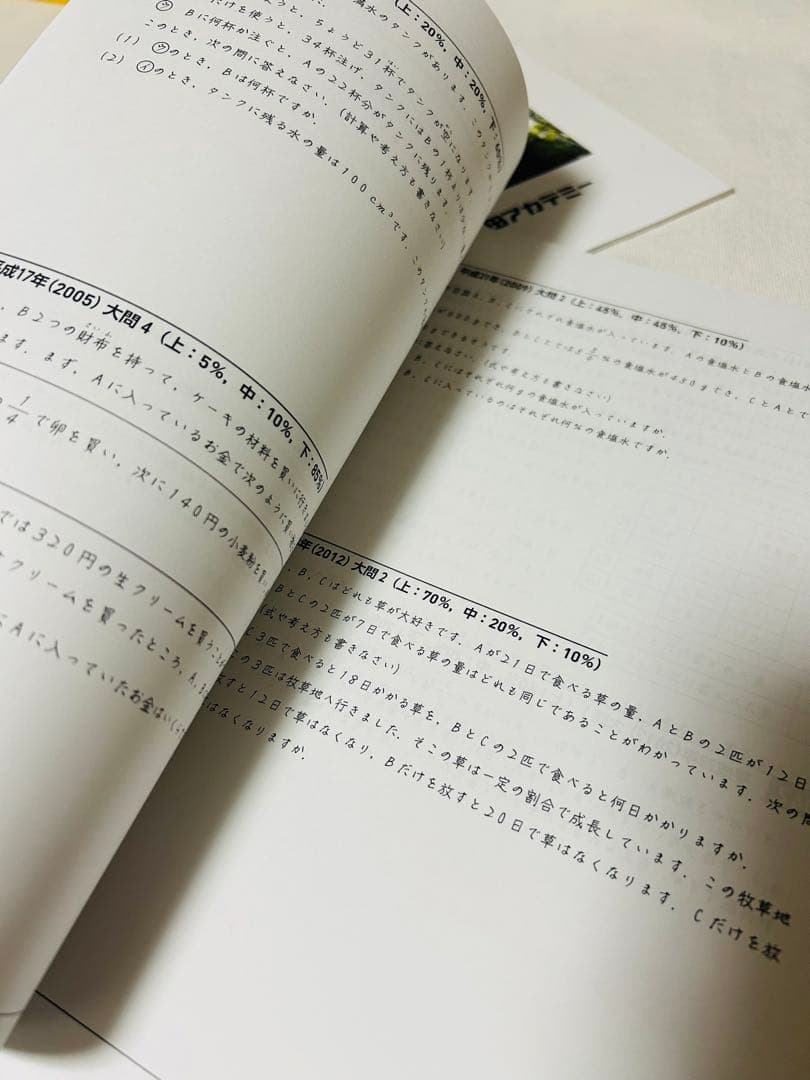 満水のタンクがあります。このタンク
ようと、ちょうど31杯でタンクが空になります
だけを使うと、34杯注げ、タンクにはBの1杯より少な
㋒ Bに何杯か注ぐと、Aの22杯分がタンクに残ります。
このとき、次の問に答えなさい。(計算や考え方も書きなさい)
(1) ㋒のとき、Bは何杯ですか。
(2) ㋑のとき、タンクに残る水の量は100cm³です。この
(上:20%, 中:20%, 下:60%)
田アカデミー
平成17年(2005) 大問4 (上:5%, 中:10%, 下:85%)
、B2つの財布を持って、ケーキの材料を買いに行き
ます。まず、Aに入っているお金で次のように買い
の1/4で卵を買い、次に140円の小麦粉を買
では320円の生クリームを買うこと
クリームを買ったところ、A、
にAに入っていたお金はいく
平成21年(2009) 大問2 (上:45%, 中:45%, 下:10%)
にそれぞれ食塩水が入っています。Aの食塩水とBの食塩水
%の食塩水が450gでき、CとAとで
できるそうです。
答えなさい。(式や考え方も書きなさい)
B、Cにはそれぞれ何gの食塩水が入っていますか。
B、Cに入っているのはそれぞれ何%の食塩水ですか。
年(2012) 大問2 (上:70%, 中:20%, 下:10%)
、B、Cはどれも草が大好きです。Aが21日で食べる草の量、AとBの2匹が12日
BとCの2匹が7日で食べる草の量はどれも同じであることがわかっています。次の問
(式や考え方も書きなさい)
C3匹で食べると18日かかる草を、BとCの2匹で食べると何日かかりますか。
の3匹は牧草地へ行きました。そこの草は一定の割合で成長しています。この牧草地
すと12日で草はなくなり、Bだけを放すと20日で草はなくなります。Cだけを放
はなくなりますか。